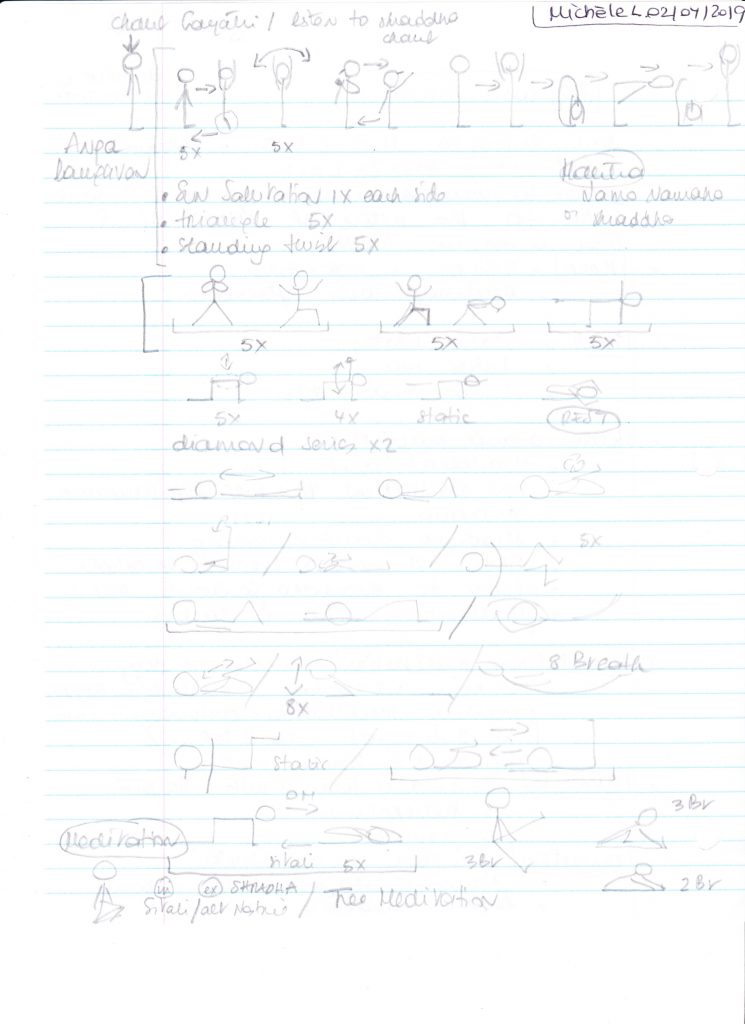 chant Gayatri / listen to shraddha chant
Michèle L 02/07/2019
5X 5X
Anga
Mantra
• Sun Salutation 1X each side
Namo Namaha
• triangle 5X
or shraddha
• standing twist 5X
5X 5X 5X
5X 4X static REST
diamond series x2
5X
8 Breath
8X
static
OM
3 Br
Meditation
Sitali 5X
3Br
in ex SHRADHA
2 Br
Sitali / alt Nostril / Tree Meditation